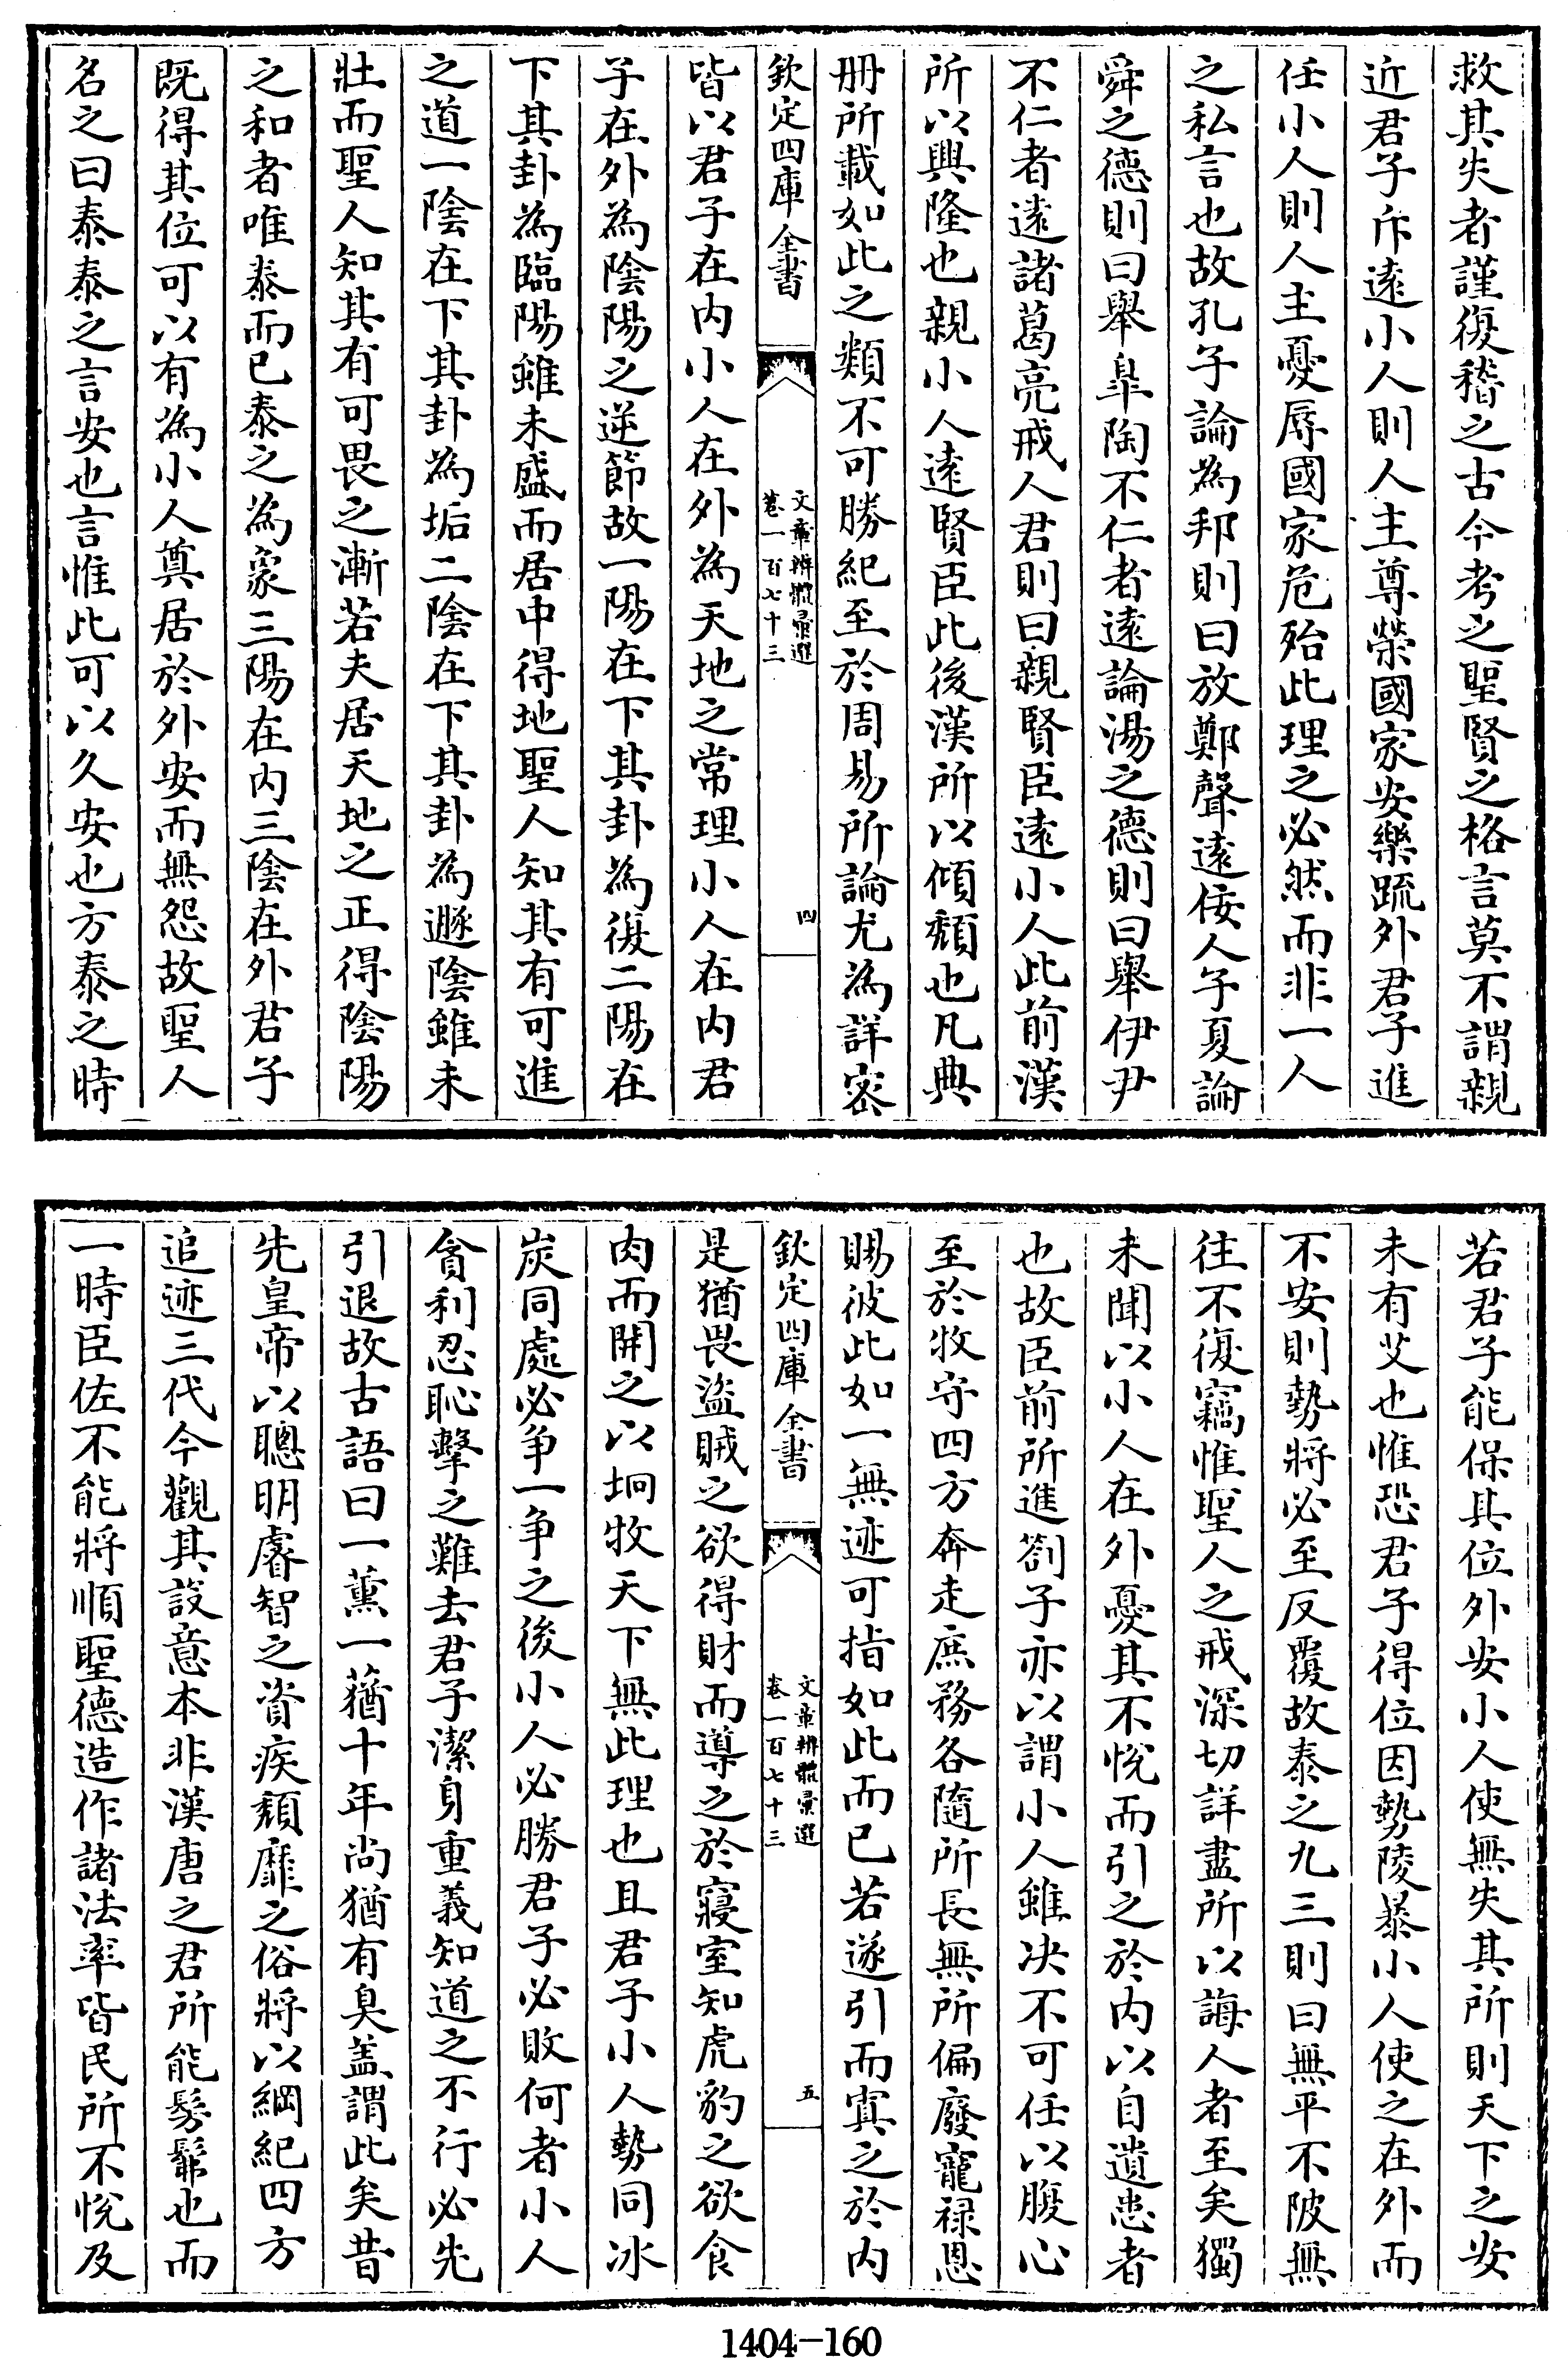 救其失者謹復稽之古今考之聖賢之格言莫不謂親
近君子斥遠小人則人主尊榮國家安樂疏外君子進
任小人則人主憂辱國家危殆此理之必然而非一人
之私言也故孔子論為邦則曰放鄭聲遠佞人子夏論
舜之德則曰舉臯陶不仁者遠論湯之德則曰舉伊尹
不仁者遠諸葛亮戒人君則曰親賢臣遠小人此前漢
所以興隆也親小人遠賢臣此後漢所以傾頹也凡典
册所載如此之類不可勝紀至於周易所論尤為詳密
欽定四庫全書
文章辨體彙選
卷一百七十三
四
皆以君子在内小人在外為天地之常理小人在内君
子在外為陰陽之逆節故一陽在下其卦為復二陽在
下其卦為臨陽雖未盛而居中得地聖人知其有可進
之道一陰在下其卦為垢二陰在下其卦為遯陰雖未
壯而聖人知其有可畏之漸若夫居天地之正得陰陽
之和者唯泰而已泰之為象三陽在内三陰在外君子
既得其位可以有為小人奠居於外安而無怨故聖人
名之曰泰泰之言安也言惟此可以久安也方泰之時
若君子能保其位外安小人使無失其所則天下之安
未有艾也惟恐君子得位因勢陵暴小人使之在外而
不安則勢將必至反覆故泰之九三則曰無平不陂無
往不復竊惟聖人之戒深切詳盡所以誨人者至矣獨
未聞以小人在外憂其不悅而引之於内以自遺患者
也故臣前所進劄子亦以謂小人雖决不可任以腹心
至於牧守四方奔走庶務各隨所長無所偏廢寵禄恩
賜彼此如一無迹可指如此而已若遂引而寘之於内
欽定四庫全書
文章辨體彙選
卷一百七十三
五
是猶畏盜賊之欲得財而導之於寢室知虎豹之欲食
肉而開之以坰牧天下無此理也且君子小人勢同冰
炭同處必争一争之後小人必勝君子必敗何者小人
貪利忍恥擊之難去君子潔身重義知道之不行必先
引退故古語曰一薰一蕕十年尚猶有臭盖謂此矣昔
先皇帝以聰明睿智之資疾頹靡之俗將以綱紀四方
追迹三代今觀其設意本非漢唐之君所能髣髴也而
一時臣佐不能將順聖德造作諸法率皆民所不悅及
1404-160